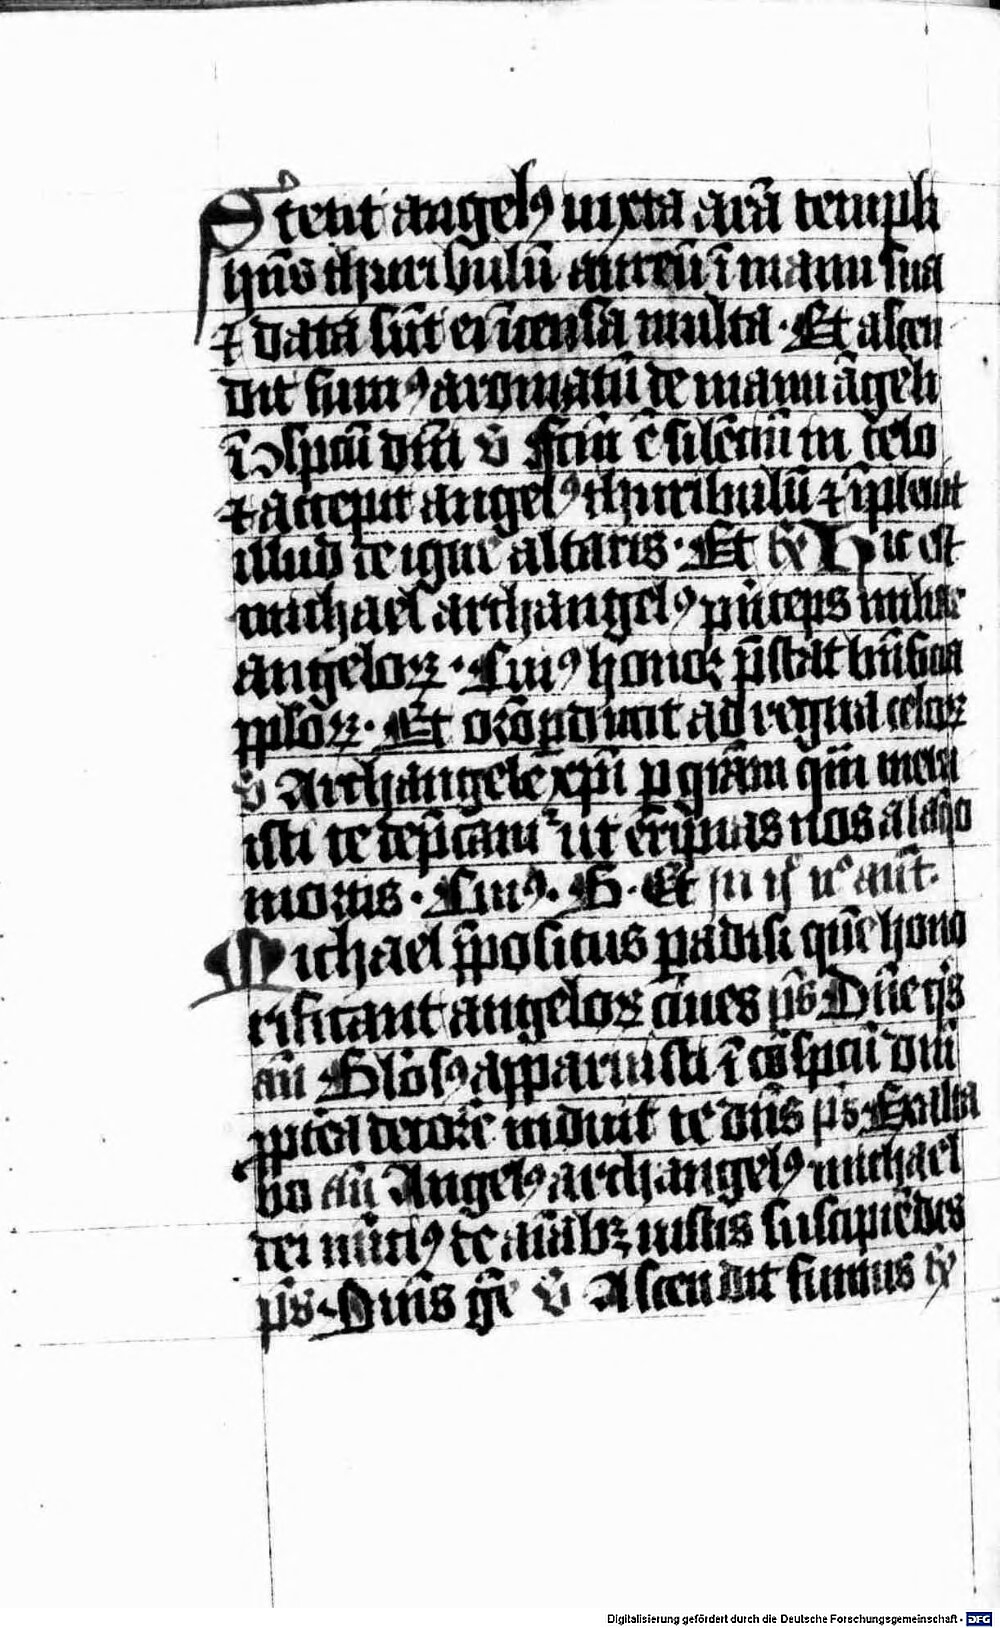 Stetit angelꝯ iuxta arā templi
hn̄s thuribulū aureū ī manu sua
⁊ data sūt ei īcensa multa · Et ascen
dit fumꝯ aromatū de manu āgeli
ī ↄspcū dn̄i v̄ Fcm̄ ē silēciū in celo
⁊ accepit angelꝯ thuribulū ⁊ īpleuit
illud de igne altaris · Et Hic est
michael archangelꝯ pͥnceps milicie
angeloꝝ · Cuiꝯ honor p̄stat bn̄ficia
ppl̄oꝝ · Et or̄o pducit ad regna celoꝝ
v̄ Archangele xp̄i p gr̄am qm̄ meru
isti te dep̄camur ut eripias nos a laq̄o
mortis · Cuiꝯ · G · Et in ii nͦ an̄t ·
Michael p̄positus padisi quē hono
rificant angeloꝝ ciues ps̄ Dn̄e qͥs
an̄ Glōsꝯ apparuisti ī cōspcū dn̄i
ꝓpt̄ea decorē induit te dn̄s ps̄ Exalta
bo an̄ Angelꝯ archangelꝯ michael
dei nūciꝯ de aīabꝫ iustis suscipiēdis
ps̄ · Dn̄s v̄ Ascendit fumus
Digitalisierung gefördert durch die Deutsche Forschungsgemeinschaft - DFG